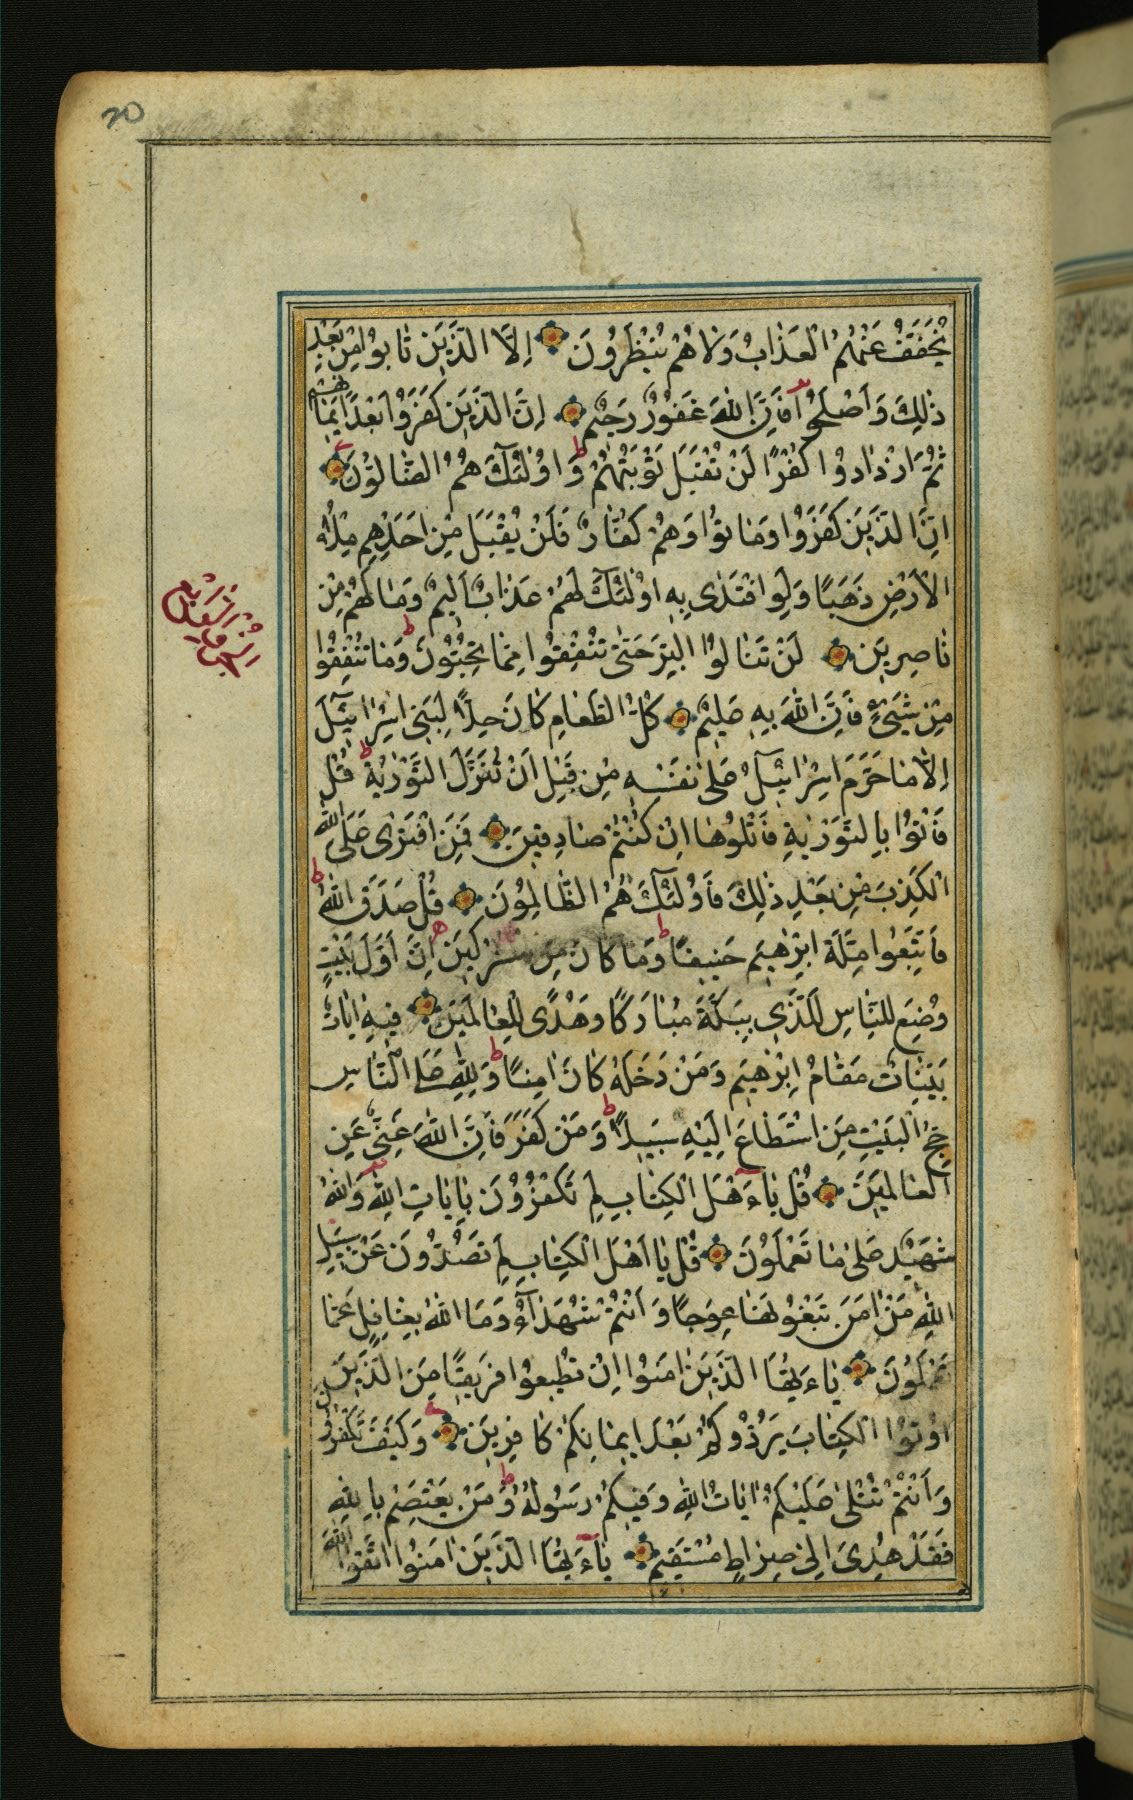 20
يُخَفَّفُ عَنْهُمُ الْعَذَابُ وَلَا هُمْ يُنْظَرُونَ إِلَّا الَّذِينَ تَابُوا مِنْ بَعْدِ
ذٰلِكَ وَأَصْلَحُوا فَإِنَّ اللهَ غَفُورٌ رَحِيمٌ إِنَّ الَّذِينَ كَفَرُوا بَعْدَ إِيمَانِهِمْ
ثُمَّ ازْدَادُوا كُفْرًا لَنْ تُقْبَلَ تَوْبَتُهُمْ وَأُولٰئِكَ هُمُ الضَّالُّونَ
إِنَّ الَّذِينَ كَفَرُوا وَمَاتُوا وَهُمْ كُفَّارٌ فَلَنْ يُقْبَلَ مِنْ أَحَدِهِمْ مِلْءُ
الْأَرْضِ ذَهَبًا وَلَوِ افْتَدٰى بِهِ أُولٰئِكَ لَهُمْ عَذَابٌ أَلِيمٌ وَمَا لَهُمْ مِنْ
نَاصِرِينَ لَنْ تَنَالُوا الْبِرَّ حَتّٰى تُنْفِقُوا مِمَّا تُحِبُّونَ وَمَا تُنْفِقُوا
مِنْ شَيْءٍ فَإِنَّ اللهَ بِهِ عَلِيمٌ كُلُّ الطَّعَامِ كَانَ حِلًّا لِبَنِي إِسْرَائِيلَ
إِلَّا مَا حَرَّمَ إِسْرَائِيلُ عَلٰى نَفْسِهِ مِنْ قَبْلِ أَنْ تُنَزَّلَ التَّوْرٰيةُ قُلْ
فَأْتُوا بِالتَّوْرٰيةِ فَاتْلُوهَا إِنْ كُنْتُمْ صَادِقِينَ فَمَنِ افْتَرٰى عَلَى اللهِ
الْكَذِبَ مِنْ بَعْدِ ذٰلِكَ فَأُولٰئِكَ هُمُ الظَّالِمُونَ قُلْ صَدَقَ اللهُ
فَاتَّبِعُوا مِلَّةَ إِبْرٰهِيمَ حَنِيفًا وَمَا كَانَ مِنَ الْمُشْرِكِينَ إِنَّ أَوَّلَ بَيْتٍ
وُضِعَ لِلنَّاسِ لَلَّذِي بِبَكَّةَ مُبَارَكًا وَهُدًى لِلْعَالَمِينَ فِيهِ اٰيَاتٌ
بَيِّنَاتٌ مَقَامُ إِبْرٰهِيمَ وَمَنْ دَخَلَهُ كَانَ اٰمِنًا وَلِلّٰهِ عَلَى النَّاسِ
حِجُّ الْبَيْتِ مَنِ اسْتَطَاعَ إِلَيْهِ سَبِيلًا وَمَنْ كَفَرَ فَإِنَّ اللهَ غَنِيٌّ عَنِ
الْعَالَمِينَ قُلْ يَا أَهْلَ الْكِتَابِ لِمَ تَكْفُرُونَ بِاٰيَاتِ اللهِ وَاللهُ
شَهِيدٌ عَلٰى مَا تَعْمَلُونَ قُلْ يَا أَهْلَ الْكِتَابِ لِمَ تَصُدُّونَ عَنْ سَبِيلِ
اللهِ مَنْ اٰمَنَ تَبْغُونَهَا عِوَجًا وَأَنْتُمْ شُهَدَاءُ وَمَا اللهُ بِغَافِلٍ عَمَّا
تَعْمَلُونَ يَا أَيُّهَا الَّذِينَ اٰمَنُوا إِنْ تُطِيعُوا فَرِيقًا مِنَ الَّذِينَ
أُوتُوا الْكِتَابَ يَرُدُّوكُمْ بَعْدَ إِيمَانِكُمْ كَافِرِينَ وَكَيْفَ تَكْفُرُونَ
وَأَنْتُمْ تُتْلٰى عَلَيْكُمْ اٰيَاتُ اللهِ وَفِيكُمْ رَسُولُهُ وَمَنْ يَعْتَصِمْ بِاللهِ
فَقَدْ هُدِيَ إِلٰى صِرَاطٍ مُسْتَقِيمٍ يَا أَيُّهَا الَّذِينَ اٰمَنُوا اتَّقُوا اللهَ